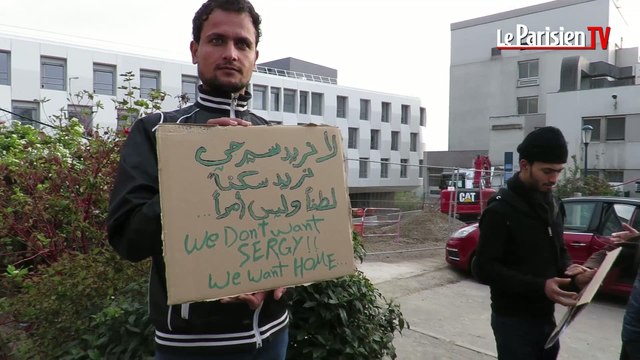 Le Parisien TV
لا نريد سيرجي
نريد سكناً
لطفاً وليس أمراً...
We Don't want
SERGY!!
We want HOME...
CAT